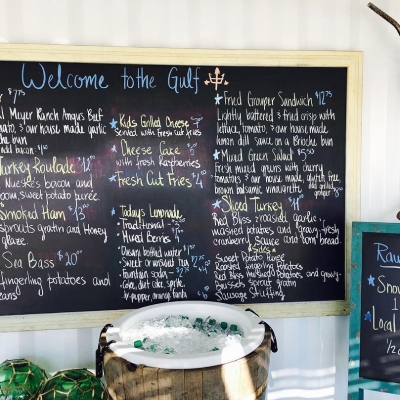 Welcome to the Gulf
$7.75
Meyer Ranch Angus Beef
tomato, & our house made garlic
bun
add bacon
Turkey Roulade
Nueske's bacon and
bacon, Sweet potato puree
Smoked Ham $13
sprouts gratin and Honey
glaze.
Sea Bass $20
fingerling potatoes and
beans
Kids Grilled Cheese
Served with Fresh Cut Fries
Cheese Cake
with fresh Raspberries
Fresh Cut Fries 4
Today's Lemonade
Traditional
Mixed Berries 4
Dasani bottled water
Sweet or unsweet tea
Fountain soda
Coke, diet coke, sprite,
Dr. pepper, orange fanta
Fried Grouper Sandwich $12.75
Lightly battered & fried crisp with
lettuce, tomato, & our house made
lemon dill sauce on a Brioche bun
Mixed Green Salad $5.50
Fresh mixed greens with cherry
tomatoes & our house made, gluten free,
brown balsamic vinaigrette
add grilled
grouper
Sliced Turkey $11
Red Bliss roasted garlic
mashed potatoes and gravy, fresh
cranberry sauce and corn bread.
Sides
Sweet Potato Puree
Roasted fingerling Potatoes
Red Bliss Mashed Potatoes and gravy
Brussels Sprout Gratin
Sausage Stuffing
Raw
Snow
Local
1/2